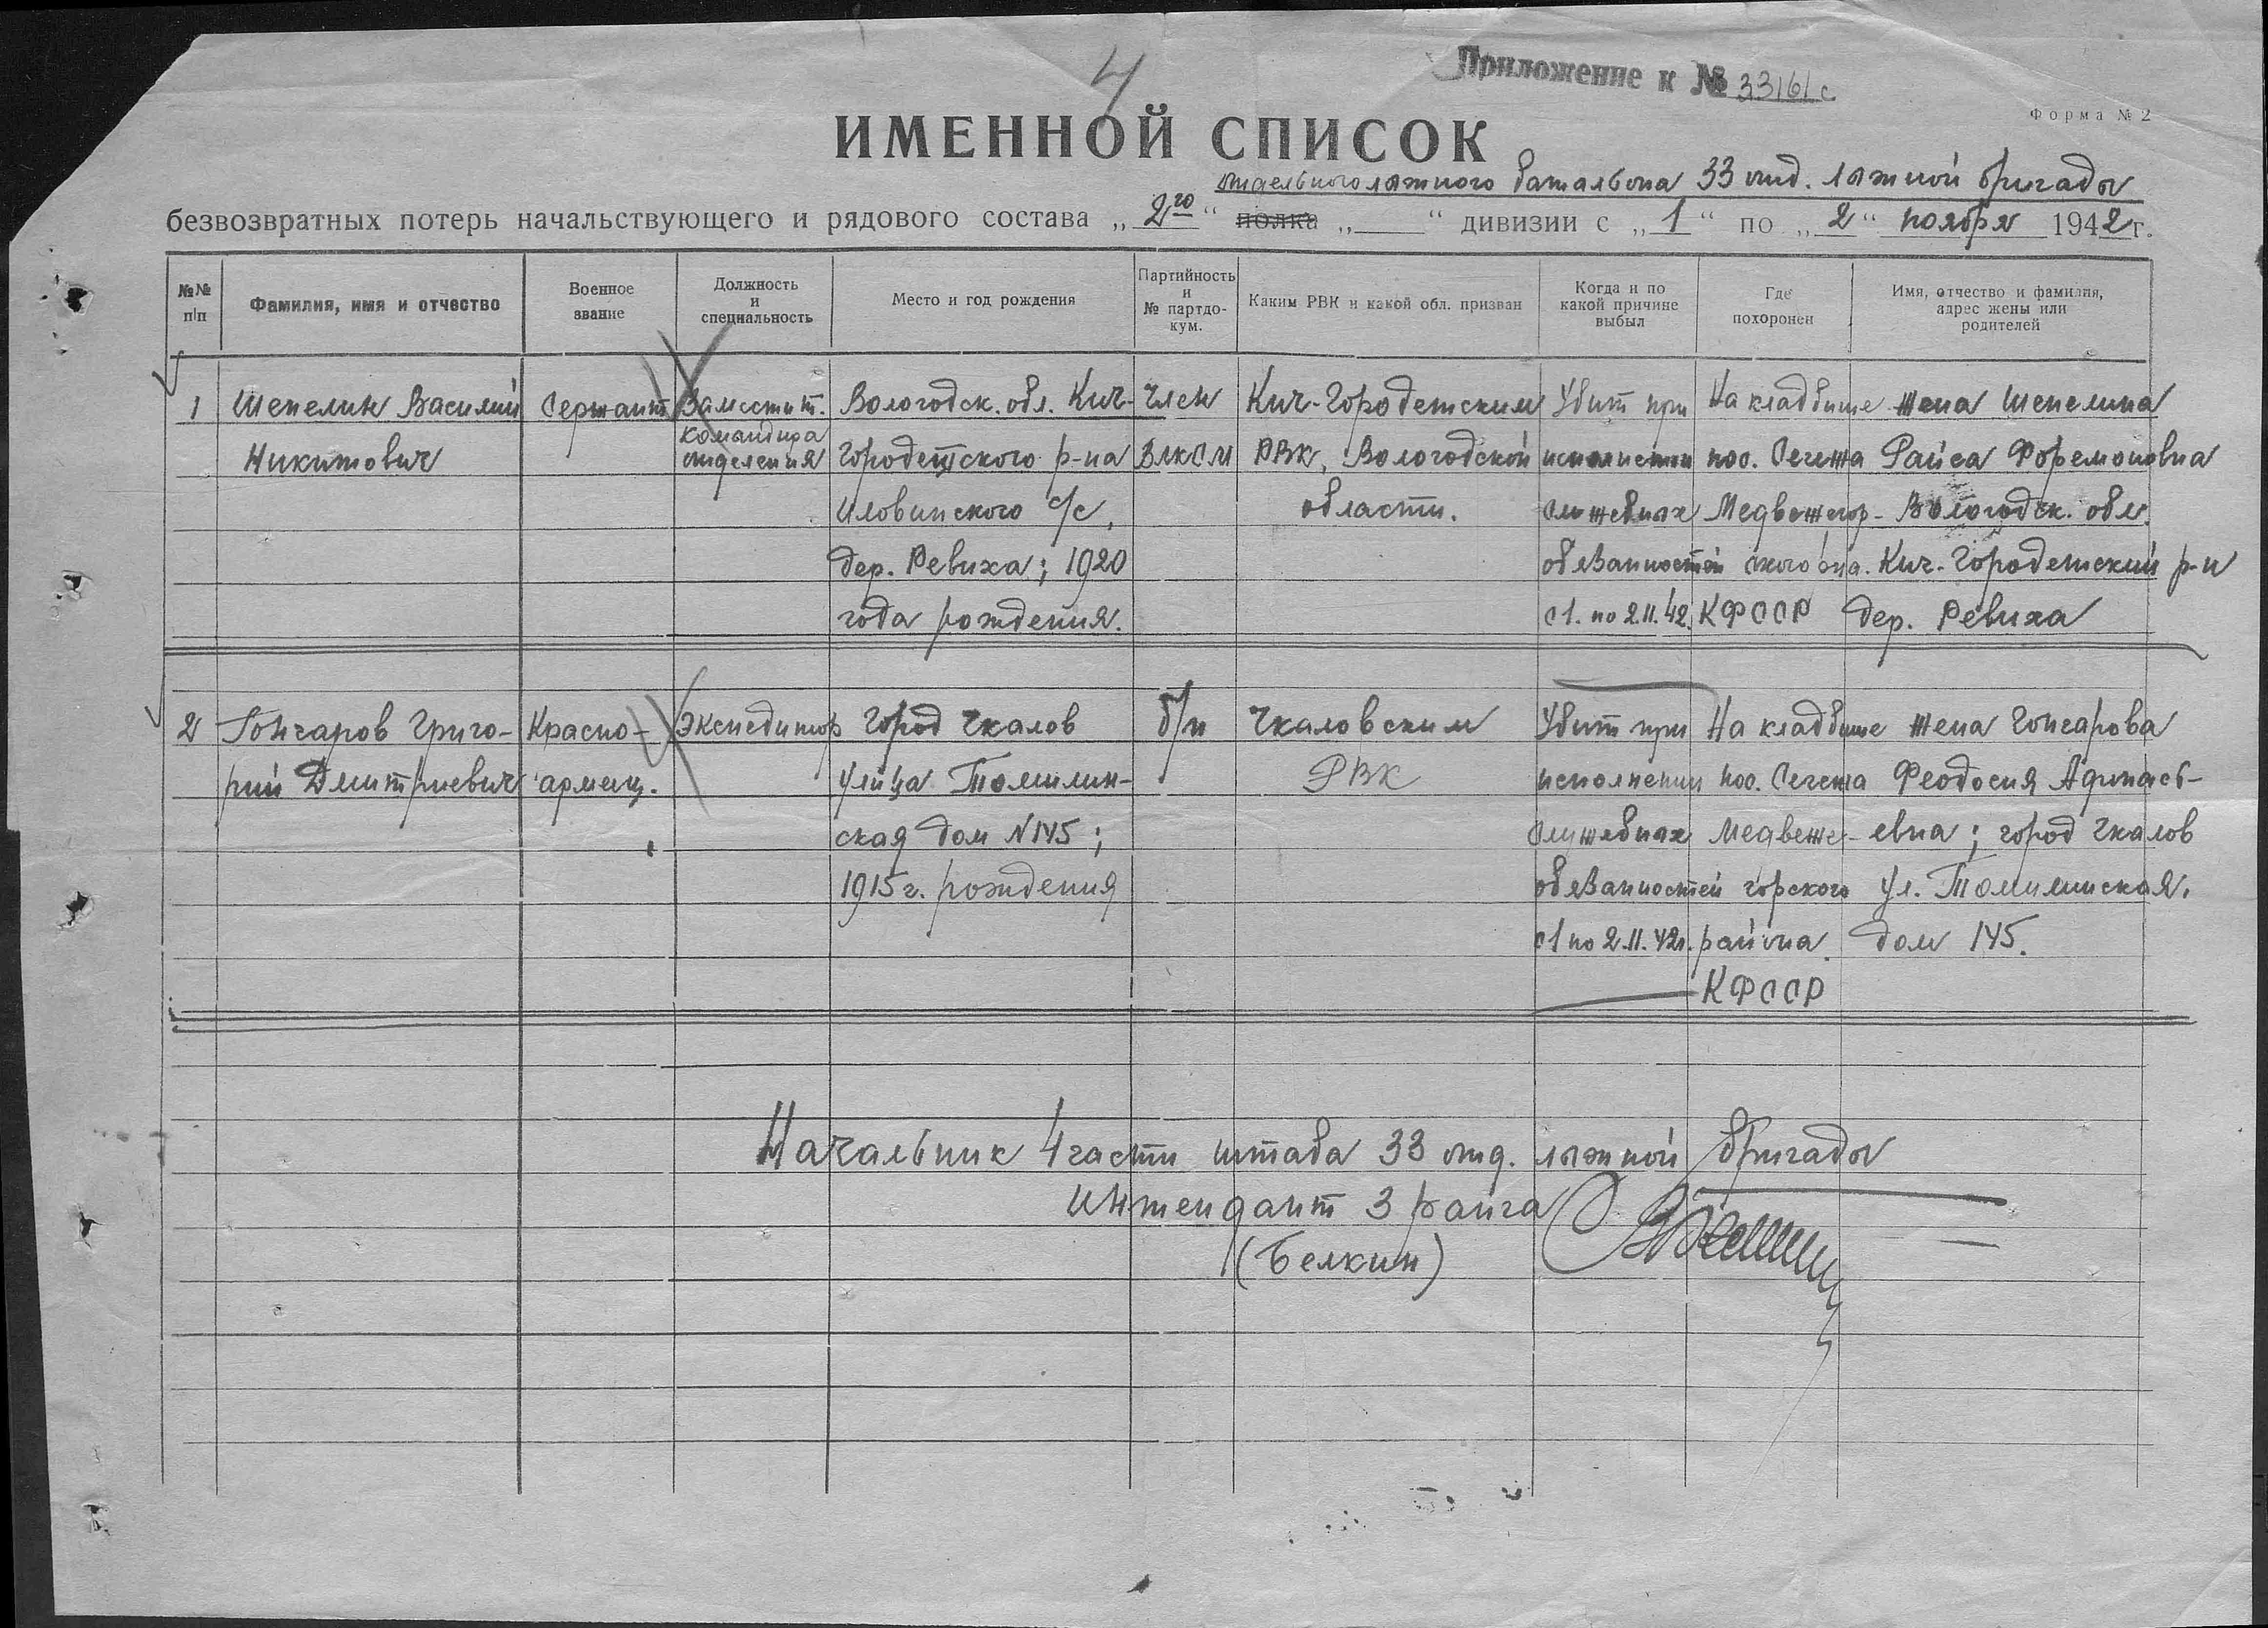 4
Приложение к № 33161с
Форма № 2
ИМЕННОЙ СПИСОК
отдельного лыжного батальона 33 отд. лыжной бригады
безвозвратных потерь начальствующего и рядового состава „2го“ полка „ “ дивизии с „1“ по „2“ ноября 1942г.
№№ п/п
Фамилия, имя и отчество
Военное звание
Должность и специальность
Место и год рождения
Партийность и № партдо-кум.
Каким РВК и какой обл. призван
Когда и по какой причине выбыл
Где похоронен
Имя, отчество и фамилия, адрес жены или родителей
1 Шепелин Василий Сержант Заместит. Вологодск. обл. Кич- Член Кич-Городетским Убит при На кладбище Жена Шепелина
Никитович командира отделения Городетского р-на ВЛКСМ РВК, Вологодской исполнении пос. Сегежа Раиса
Иловинского с/с, области. служебных Медвежегор- Вологодск. обл.
дер. Ревиха; 1920 обязаностей ского р-на. Кич-Городетский р-н
года рождения. с 1. по 2.11.42. КФССР дер. Ревиха
2 Гончаров Григо- Красно- Экспедитор Город Чкалов б/п Чкаловским Убит при На кладбище Жена Гончарова
рий Дмитриевич армеец. улица Томилин- РВК исполнении пос. Сегежа Феодосия Афонась-
ская дом N145; служебных Медвеже- евна; город Чкалов
1915г. рождения обязаностей горского ул. Томилинская.
с 1 по 2.11.42г. района. дом 145.
КФССР
Начальник 4 части штаба 33 отд. лыжной бригады
Интендант 3 ранга
(Белкин)